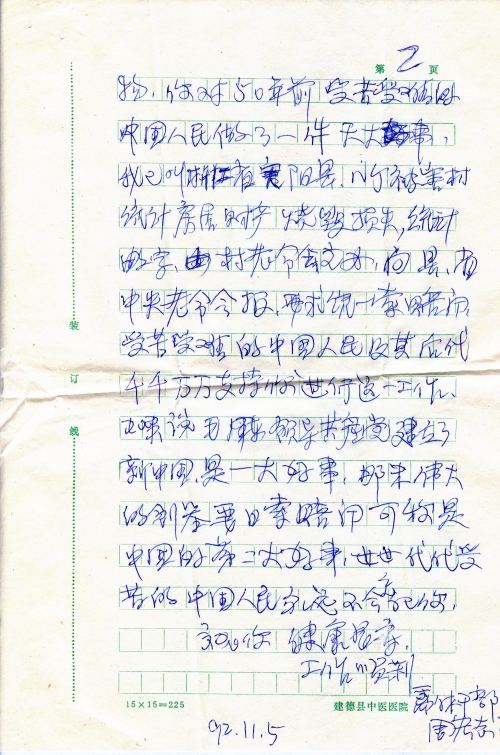 第 2 页
物,你对50年前受苦受难的
中国人民做了一件天大好事,
我已叫浙江省 阳县,小 被害村
统计房屋财产烧毁损失,统计
数字,由村老 会交办,向县,省
中央老 会报,要求统一索赔问,
受苦受难的中国人民及其后代
千千万万支持你进行这一工作、
如果说毛泽东领导共产党建立了
新中国,是一大好事,那末伟大
的 要日索赔问 是
中国的第二大好事,世世代代受
苦的中国人民永远不会忘记你,
祝你 健康 ,
工作顺利
装
订
线
15×15=225
建德县中医医院
干部
周
92.11.5